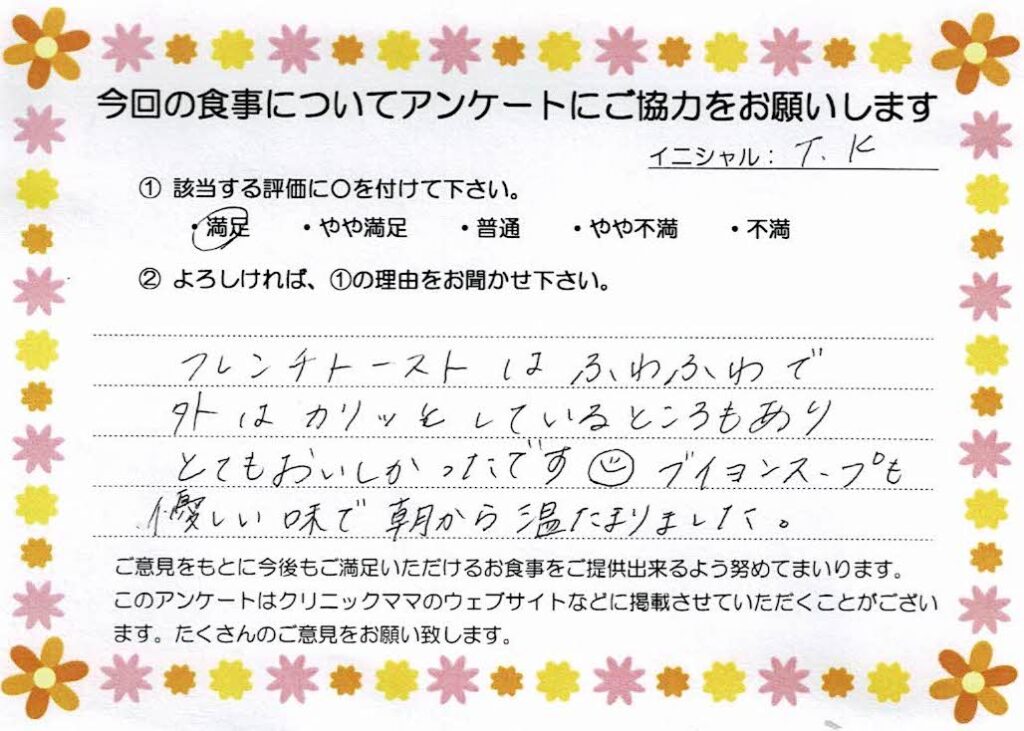 今回の食事についてアンケートにご協力をお願いします
イニシャル： T. K
① 該当する評価に○を付けて下さい。
・満足 ・やや満足 ・普通 ・やや不満 ・不満
② よろしければ、①の理由をお聞かせ下さい。
フレンチトーストはふわふわで
外はカリッとしているところもあり
とてもおいしかったです ブイヨンスープも
優しい味で朝から温たまりました。
ご意見をもとに今後もご満足いただけるお食事をご提供出来るよう努めてまいります。
このアンケートはクリニックママのウェブサイトなどに掲載させていただくことがござい
ます。たくさんのご意見をお願い致します。